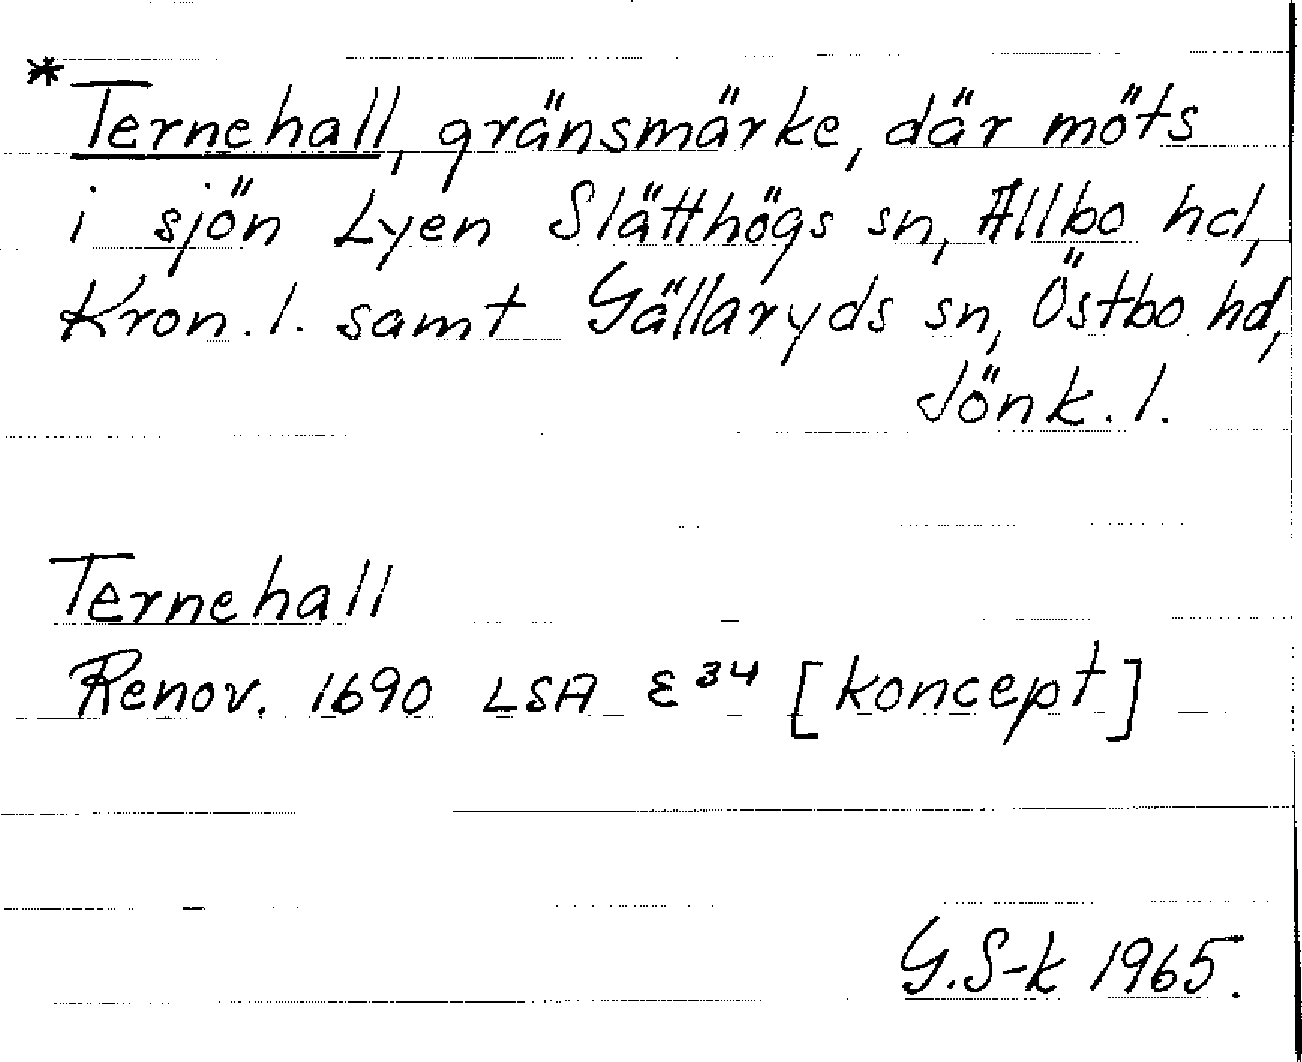 * Ternehall, gränsmärke, där möts
i sjön Lyen Slätthögs sn, Allbo hd,
Kron. l. samt Gällaryds sn, Östbo hd,
Jönk. l.
Ternehall
Renov. 1690 LSA E³⁴ [koncept]
G.S-k 1965.